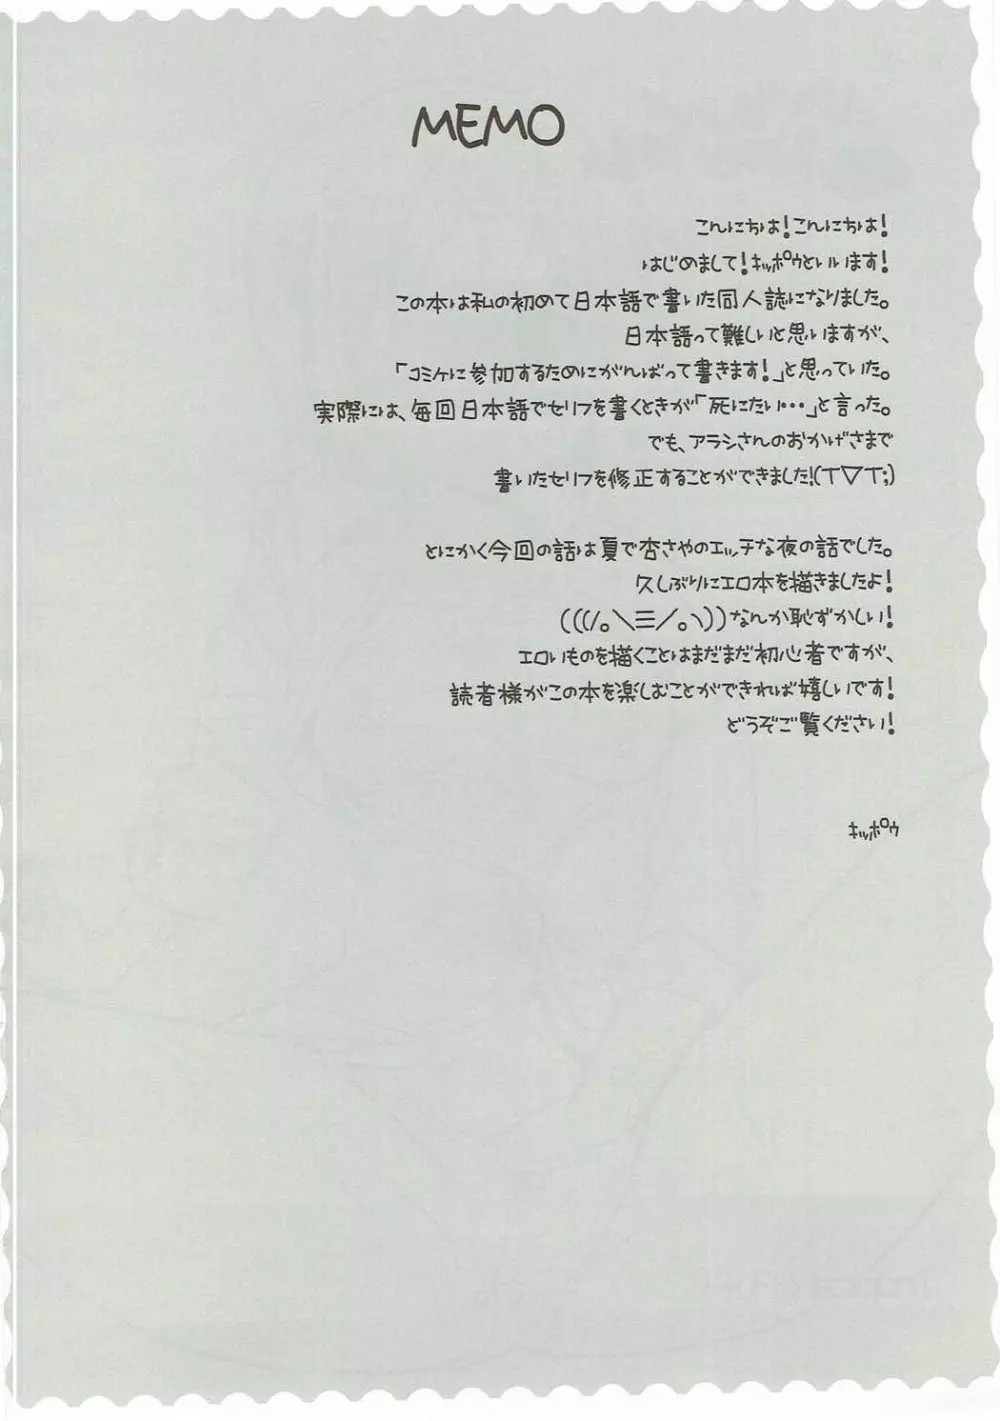 MEMO
こんにちは!こんにちは!
はじめまして!キッポウといいます!
この本は私の初めて日本語で書いた同人誌になりました。
日本語って難しいと思いますが、
「コミケに参加するためにがんばって書きます!」と思っていた。
実際には、毎回日本語でセリフを書くときが「死にたい・・・」と言った。
でも、アラシさんのおかげさまで
書いたセリフを修正することができました!(T▽T;)
とにかく今回の話は夏で杏さやのエッチな夜の話でした。
久しぶりにエロ本を描きましたよ!
(((/。\三/。\))なんか恥ずかしい!
エロいものを描くことはまだまだ初心者ですが、
読者様がこの本を楽しむことができれば嬉しいです!
どうぞご覧ください!
キッポウ